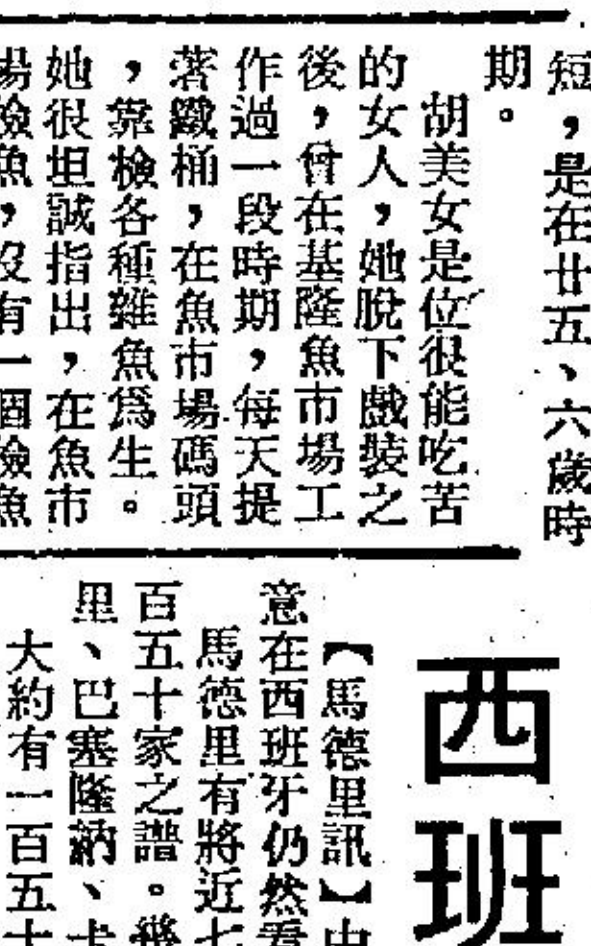 短，是在廿五、六歲時
期。
胡美女是位很能吃苦
的女人，她脫下戲裝之
後，曾在基隆魚市場工
作過一段時期，每天提
著鐵桶，在魚市場碼頭
，靠檢各種雜魚爲生。
她很坦誠指出，在魚市
場檢魚，沒有一個檢魚
西班
【馬德里訊】中
意在西班牙仍然看
馬德里有將近七
百五十家之譜。幾
里、巴塞隆納、卡
大約有一百五十